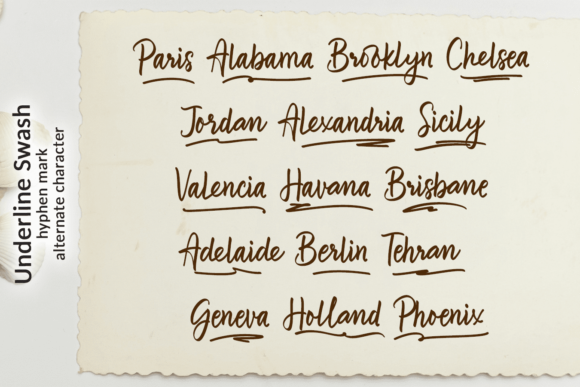 Underline Swash
hyphen mark
alternate character
Paris Alabama Brooklyn Chelsea
Jordan Alexandria Sicily
Valencia Havana Brisbane
Adelaide Berlin Tehran
Geneva Holland Phoenix